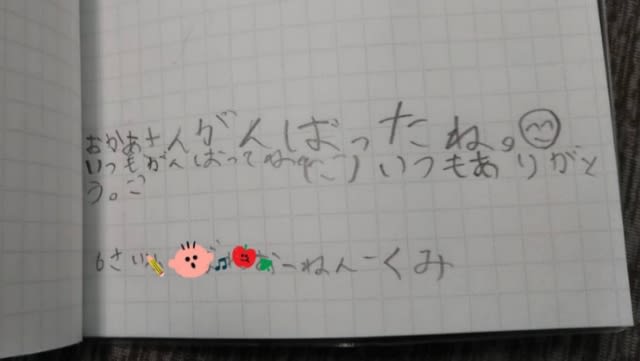 おかあさんがんばったね。
いつもがんばって いつもありがと
う。
6さい
ーねんーくみ